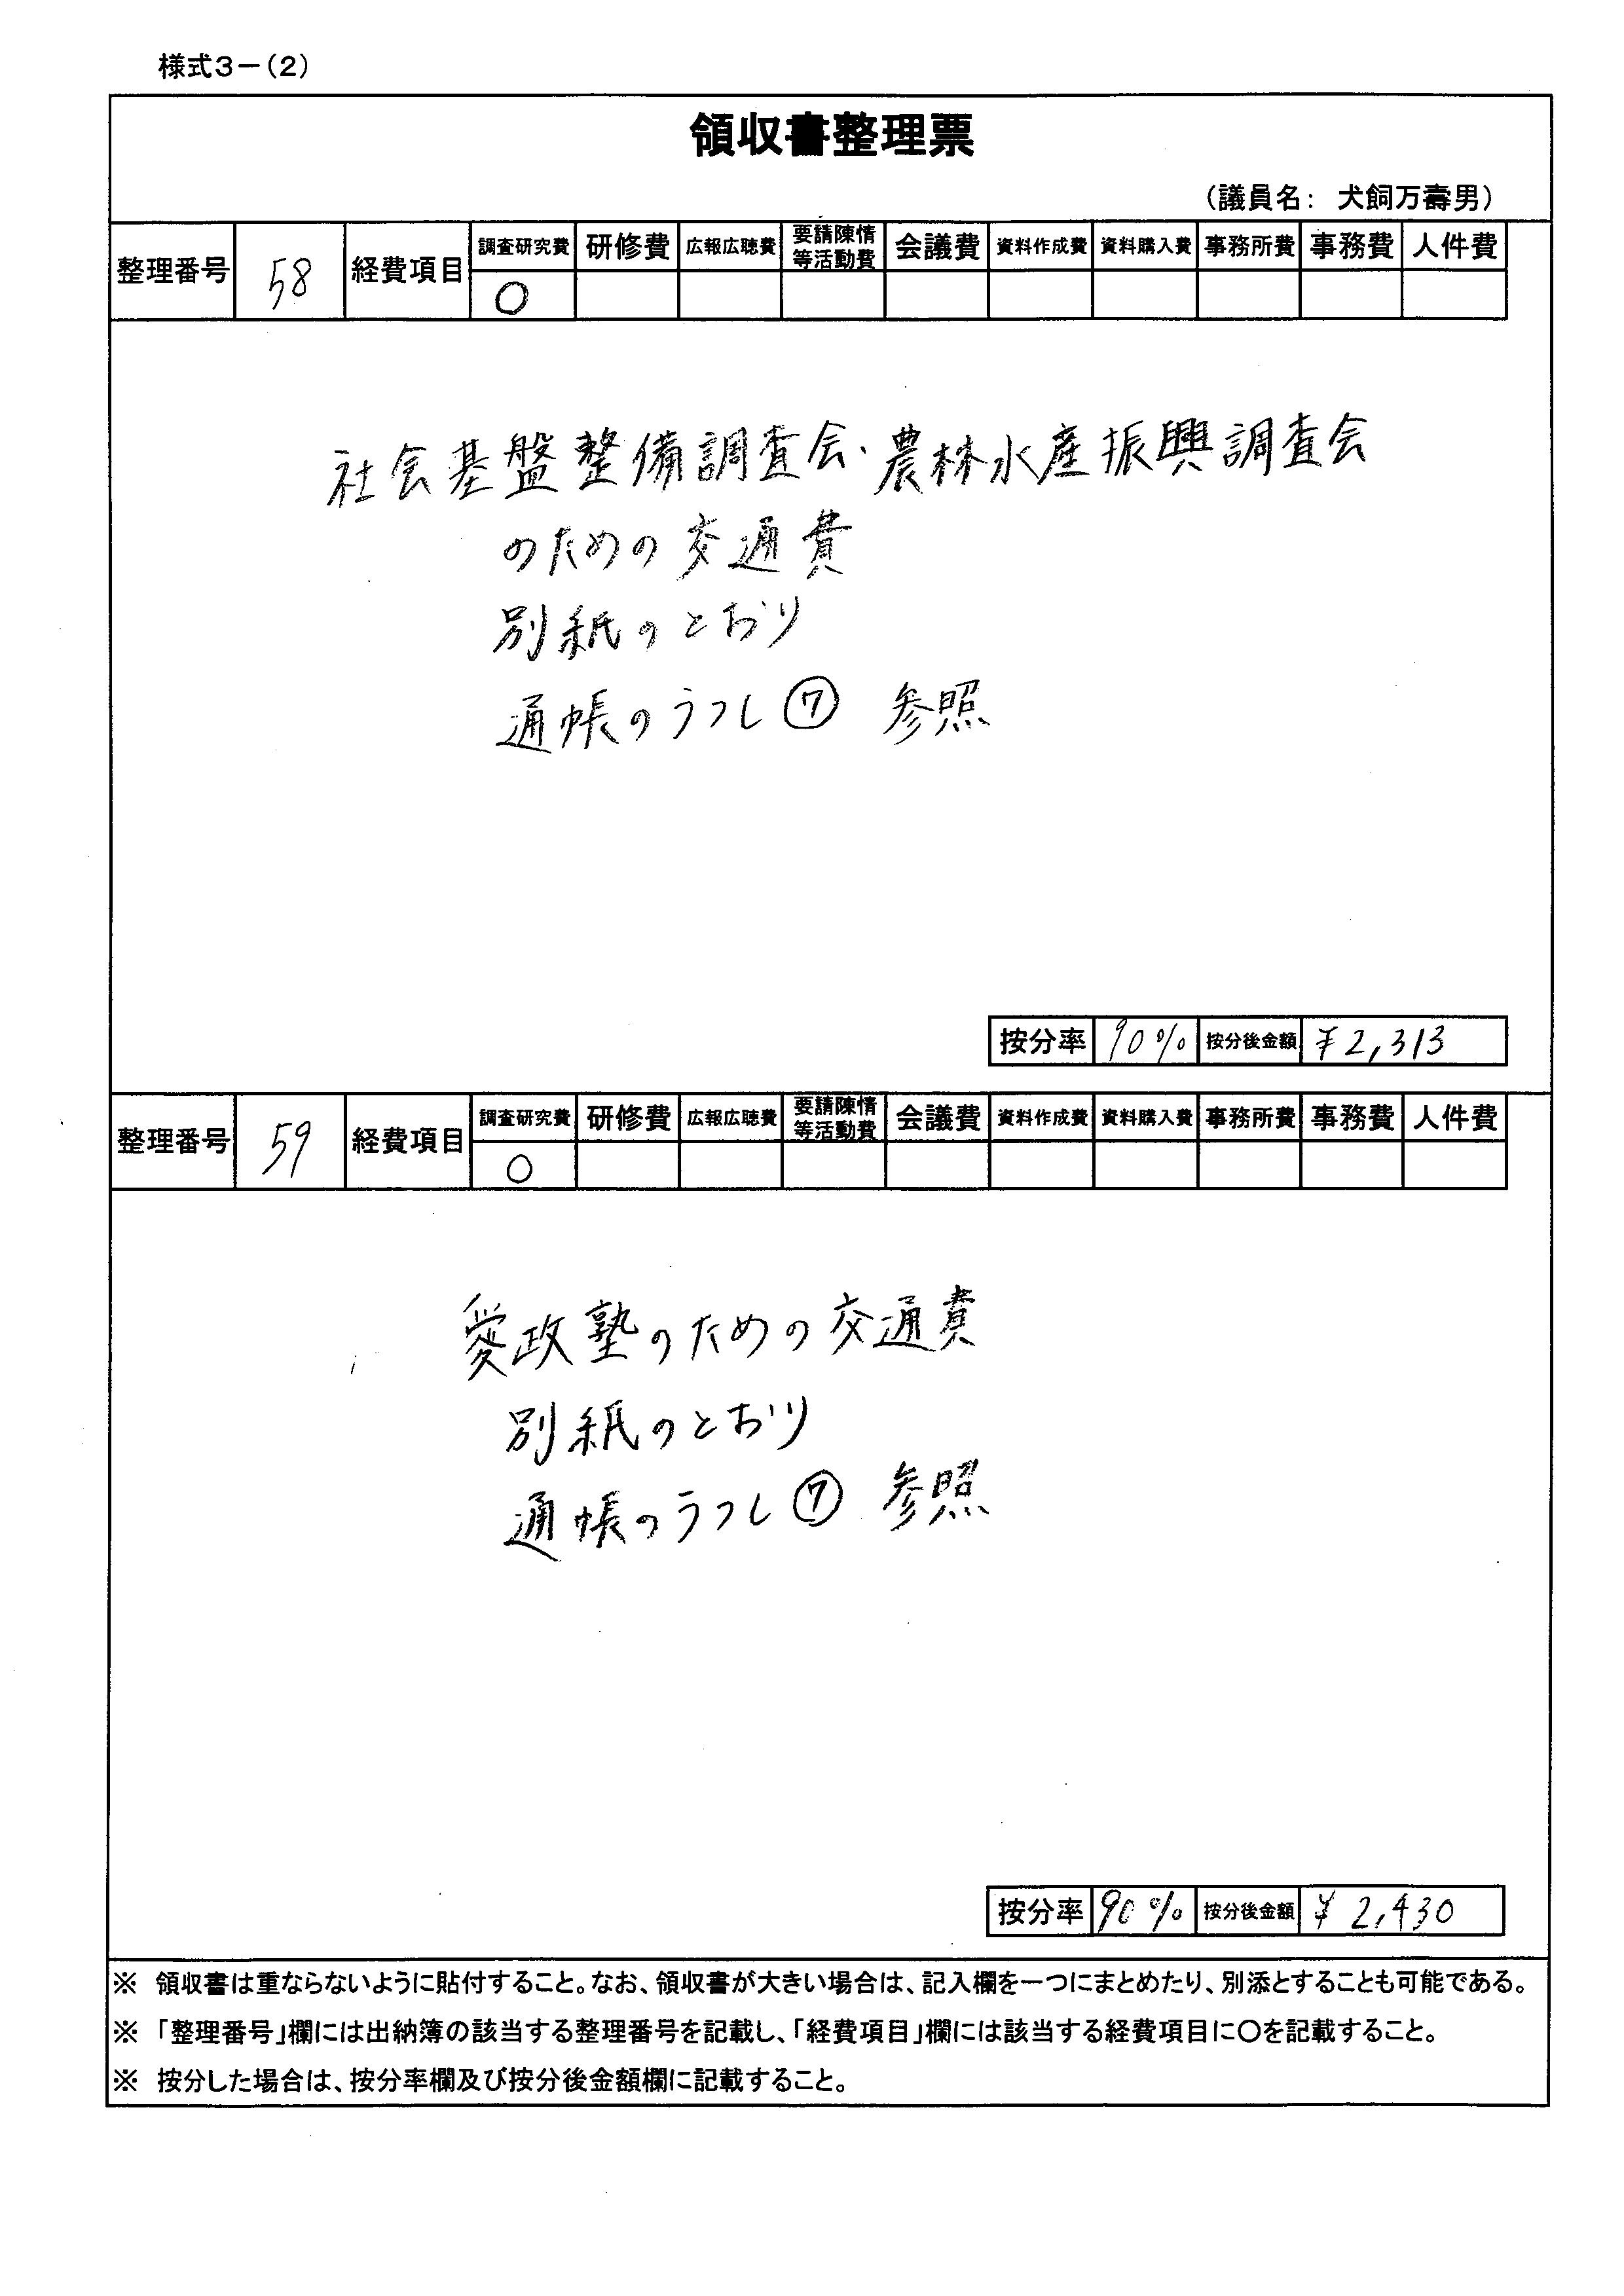 様式3－(2)
領収書整理票
(議員名: 犬飼万壽男)
整理番号 58 経費項目 調査研究費 研修費 広報広聴費 要請陳情等活動費 会議費 資料作成費 資料購入費 事務所費 事務費 人件費
○
社会基盤整備調査会・農林水産振興調査会
のための交通費
別紙のとおり
通帳のうつし⑦ 参照
按分率 90% 按分後金額 ¥2,313
整理番号 59 経費項目 調査研究費 研修費 広報広聴費 要請陳情等活動費 会議費 資料作成費 資料購入費 事務所費 事務費 人件費
○
愛政塾のための交通費
別紙のとおり
通帳のうつし⑦ 参照
按分率 90% 按分後金額 ¥2,430
※ 領収書は重ならないように貼付すること。なお、領収書が大きい場合は、記入欄を一つにまとめたり、別添とすることも可能である。
※ 「整理番号」欄には出納簿の該当する整理番号を記載し、「経費項目」欄には該当する経費項目に○を記載すること。
※ 按分した場合は、按分率欄及び按分後金額欄に記載すること。